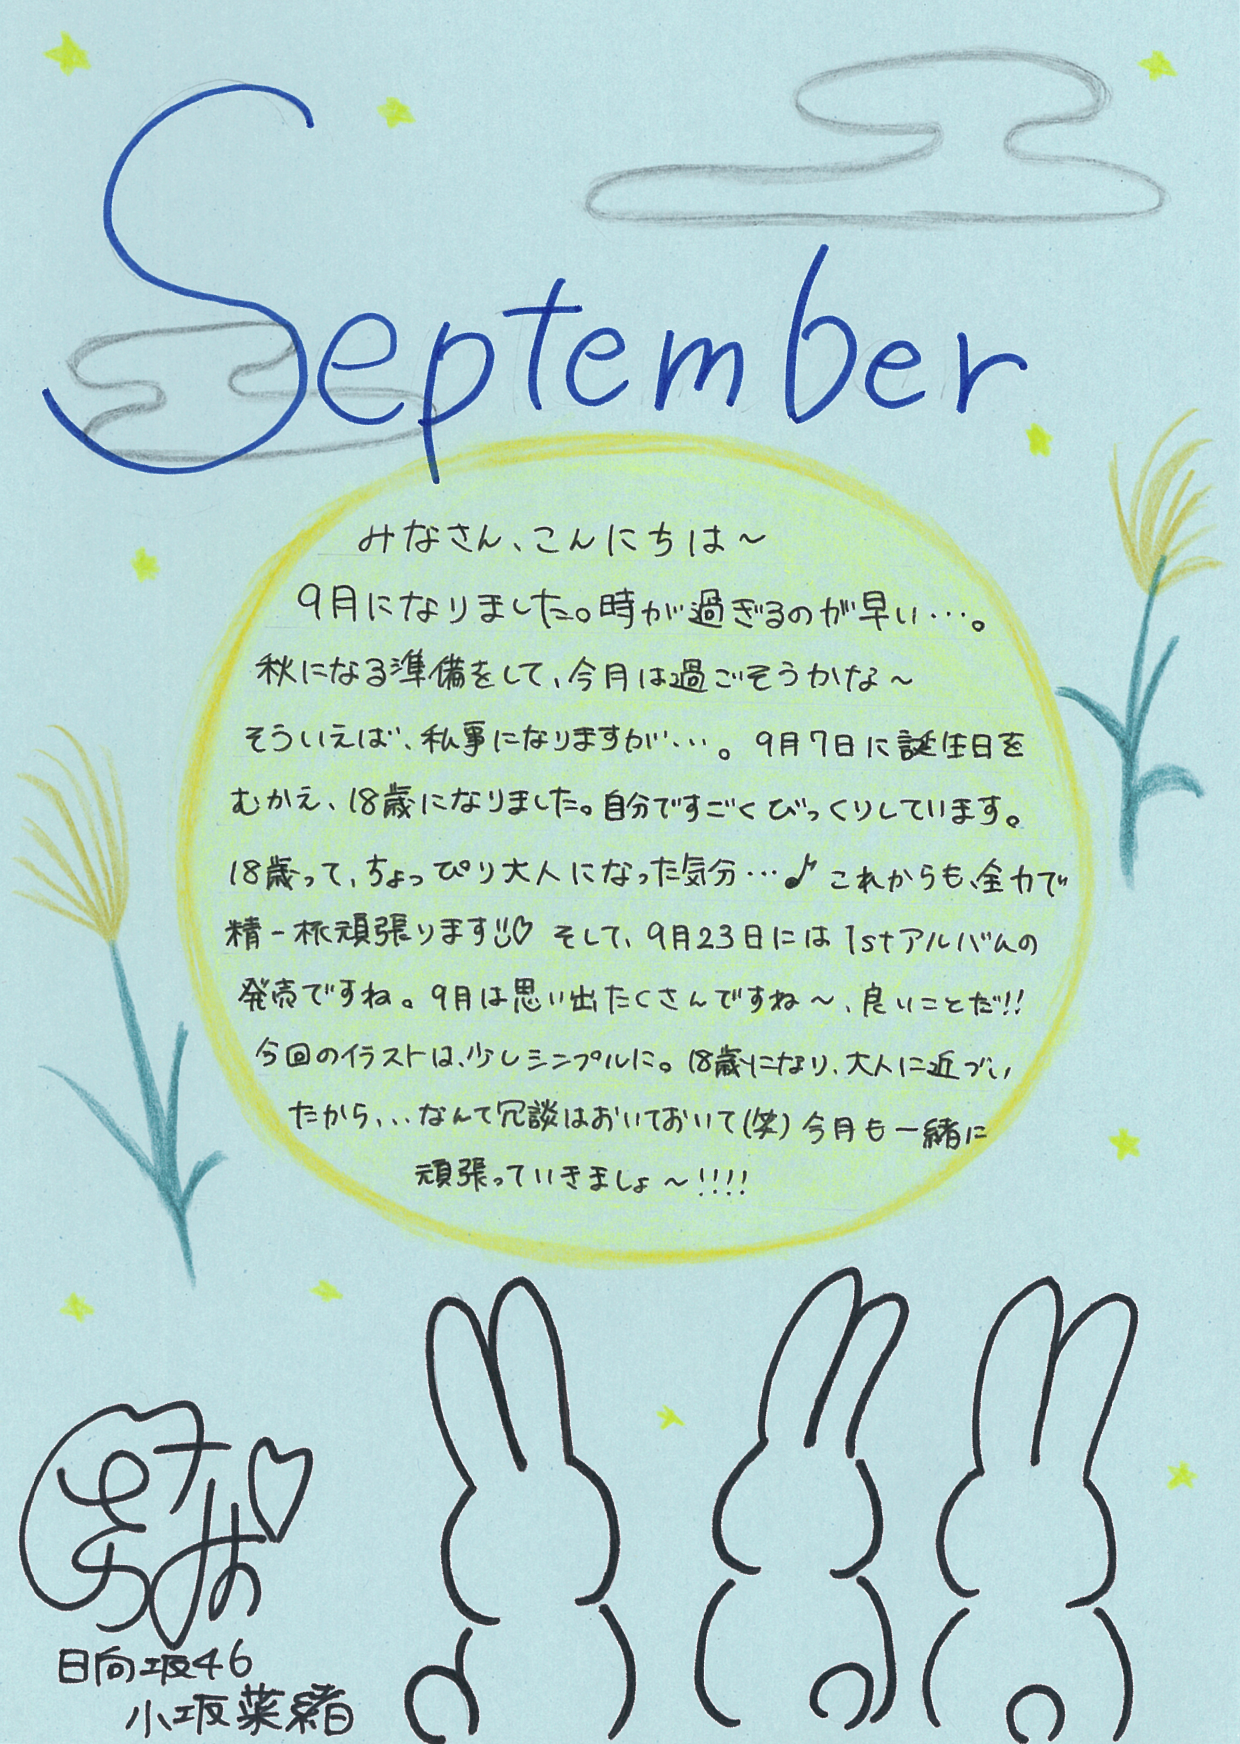 September
みなさん、こんにちは〜
9月になりました。時が過ぎるのが早い…。
秋になる準備をして、今月は過ごそうかな〜
そういえば、私事になりますが…。9月7日に誕生日を
むかえ、18歳になりました。自分ですごくびっくりしています。
18歳って、ちょっぴり大人になった気分…♪これからも、全力で
精一杯頑張ります!!♡ そして、9月23日には1stアルバムの
発売ですね。9月は思い出たくさんですね〜、良いことだ!!
今回のイラストは、少しシンプルに。18歳になり、大人に近づい
たから...なんて冗談はおいておいて(笑)今月も一緒に
頑張っていきましょ〜!!!!
日向坂46
小坂菜緒